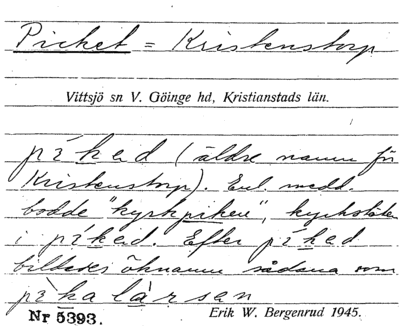 Picket = Kristenstorp
Vittsjö sn V. Göinge hd, Kristianstads län.
píked (äldre namn för
Kristenstorp). Enl. medd.
bodde "kyrkpiken", kyrkstöten
i píked. Efter píked
bildades öknamn sådana som
pìkalàrsen
Nr 5393. Erik W. Bergenrud 1945.